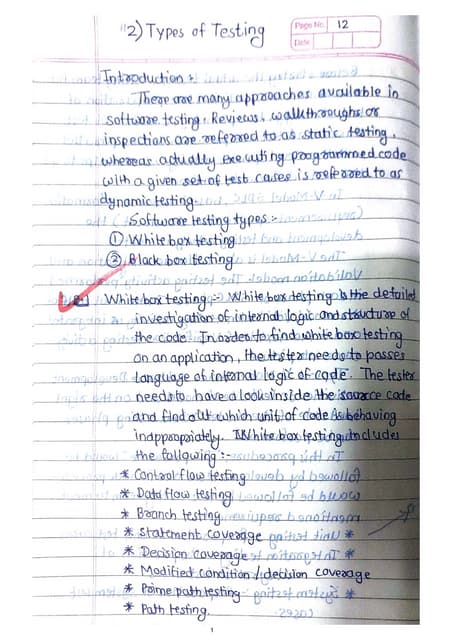 "2) Types of Testing
Page No. 12
Date
Introduction :-
There are many approaches available in
software testing. Reviews, walkthroughs or
inspections are referred to as static testing,
whereas actually executing programmed code
with a given set of test cases is referred to as
dynamic testing.
Software testing types :-
① White box testing
② Black box testing
White box testing :- White box testing is the detailed
investigation of internal logic and structure of
the code. In order to find white box testing
on an application, the tester needs to posses
language of internal logic of code. The tester
needs to have a look inside the source code
and find out which unit of code is behaving
inappropriately. White box testing includes
the following :-
* Control flow testing
* Data flow testing
* Branch testing
* Statement coverage
* Decision coverage
* Modified condition / decision coverage
* Prime path testing
* Path testing.
1